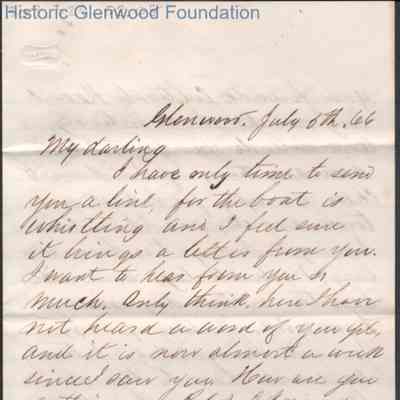 Historic Glenwood Foundation
Glenwood. July 5th. 66
My darling
I have only time to send
you a line, for the boat is
whistling and I feel sure
it brings a letter from you.
I want to hear from you so
much. Only think, here I have
not heard a word of you yet,
and it is now almost a week
since I saw you. How are you